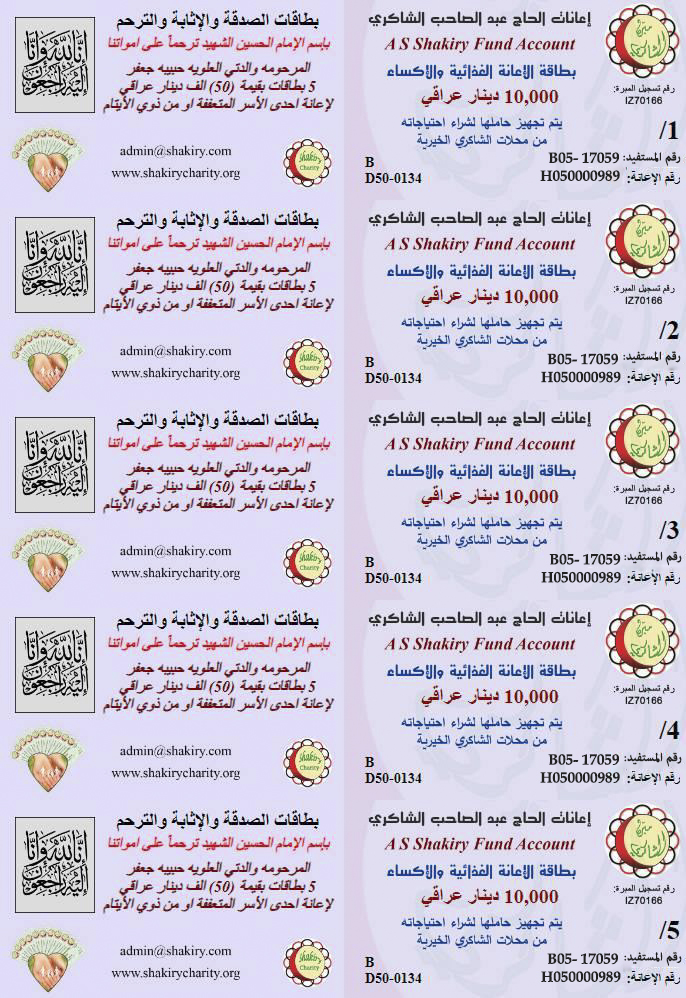 إعانات الحاج عبد الصاحب الشاكري
A S Shakiry Fund Account
بطاقة الأعانة الغذائية والأكساء
10,000 دينار عراقي
يتم تجهيز حاملها لشراء احتياجاته
من محلات الشاكري الخيرية
مبرة الشاكري
رقم تسجيل المبرة:
IZ70166
/1
رقم المستفيد: B05- 17059
رقم الإعانة: H050000989
B
D50-0134
بطاقات الصدقة والإثابة والترحم
بإسم الإمام الحسين الشهيد ترحماً على امواتنا
المرحومه والدتي العلويه حبيبه جعفر
5 بطاقات بقيمة (50) الف دينار عراقي
لإعانة احدى الأسر المتعففة او من ذوي الأيتام
إنا لله وإنا إليه راجعون
admin@shakiry.com
www.shakirycharity.org
Shakiry Charity
إعانات الحاج عبد الصاحب الشاكري
A S Shakiry Fund Account
بطاقة الأعانة الغذائية والأكساء
10,000 دينار عراقي
يتم تجهيز حاملها لشراء احتياجاته
من محلات الشاكري الخيرية
مبرة الشاكري
رقم تسجيل المبرة:
IZ70166
/2
رقم المستفيد: B05- 17059
رقم الإعانة: H050000989
B
D50-0134
بطاقات الصدقة والإثابة والترحم
بإسم الإمام الحسين الشهيد ترحماً على امواتنا
المرحومه والدتي العلويه حبيبه جعفر
5 بطاقات بقيمة (50) الف دينار عراقي
لإعانة احدى الأسر المتعففة او من ذوي الأيتام
إنا لله وإنا إليه راجعون
admin@shakiry.com
www.shakirycharity.org
Shakiry Charity
إعانات الحاج عبد الصاحب الشاكري
A S Shakiry Fund Account
بطاقة الأعانة الغذائية والأكساء
10,000 دينار عراقي
يتم تجهيز حاملها لشراء احتياجاته
من محلات الشاكري الخيرية
مبرة الشاكري
رقم تسجيل المبرة:
IZ70166
/3
رقم المستفيد: B05- 17059
رقم الإعانة: H050000989
B
D50-0134
بطاقات الصدقة والإثابة والترحم
بإسم الإمام الحسين الشهيد ترحماً على امواتنا
المرحومه والدتي العلويه حبيبه جعفر
5 بطاقات بقيمة (50) الف دينار عراقي
لإعانة احدى الأسر المتعففة او من ذوي الأيتام
إنا لله وإنا إليه راجعون
admin@shakiry.com
www.shakirycharity.org
Shakiry Charity
إعانات الحاج عبد الصاحب الشاكري
A S Shakiry Fund Account
بطاقة الأعانة الغذائية والأكساء
10,000 دينار عراقي
يتم تجهيز حاملها لشراء احتياجاته
من محلات الشاكري الخيرية
مبرة الشاكري
رقم تسجيل المبرة:
IZ70166
/4
رقم المستفيد: B05- 17059
رقم الإعانة: H050000989
B
D50-0134
بطاقات الصدقة والإثابة والترحم
بإسم الإمام الحسين الشهيد ترحماً على امواتنا
المرحومه والدتي العلويه حبيبه جعفر
5 بطاقات بقيمة (50) الف دينار عراقي
لإعانة احدى الأسر المتعففة او من ذوي الأيتام
إنا لله وإنا إليه راجعون
admin@shakiry.com
www.shakirycharity.org
Shakiry Charity
إعانات الحاج عبد الصاحب الشاكري
A S Shakiry Fund Account
بطاقة الأعانة الغذائية والأكساء
10,000 دينار عراقي
يتم تجهيز حاملها لشراء احتياجاته
من محلات الشاكري الخيرية
مبرة الشاكري
رقم تسجيل المبرة:
IZ70166
/5
رقم المستفيد: B05- 17059
رقم الإعانة: H050000989
B
D50-0134
بطاقات الصدقة والإثابة والترحم
بإسم الإمام الحسين الشهيد ترحماً على امواتنا
المرحومه والدتي العلويه حبيبه جعفر
5 بطاقات بقيمة (50) الف دينار عراقي
لإعانة احدى الأسر المتعففة او من ذوي الأيتام
إنا لله وإنا إليه راجعون
admin@shakiry.com
www.shakirycharity.org
Shakiry Charity